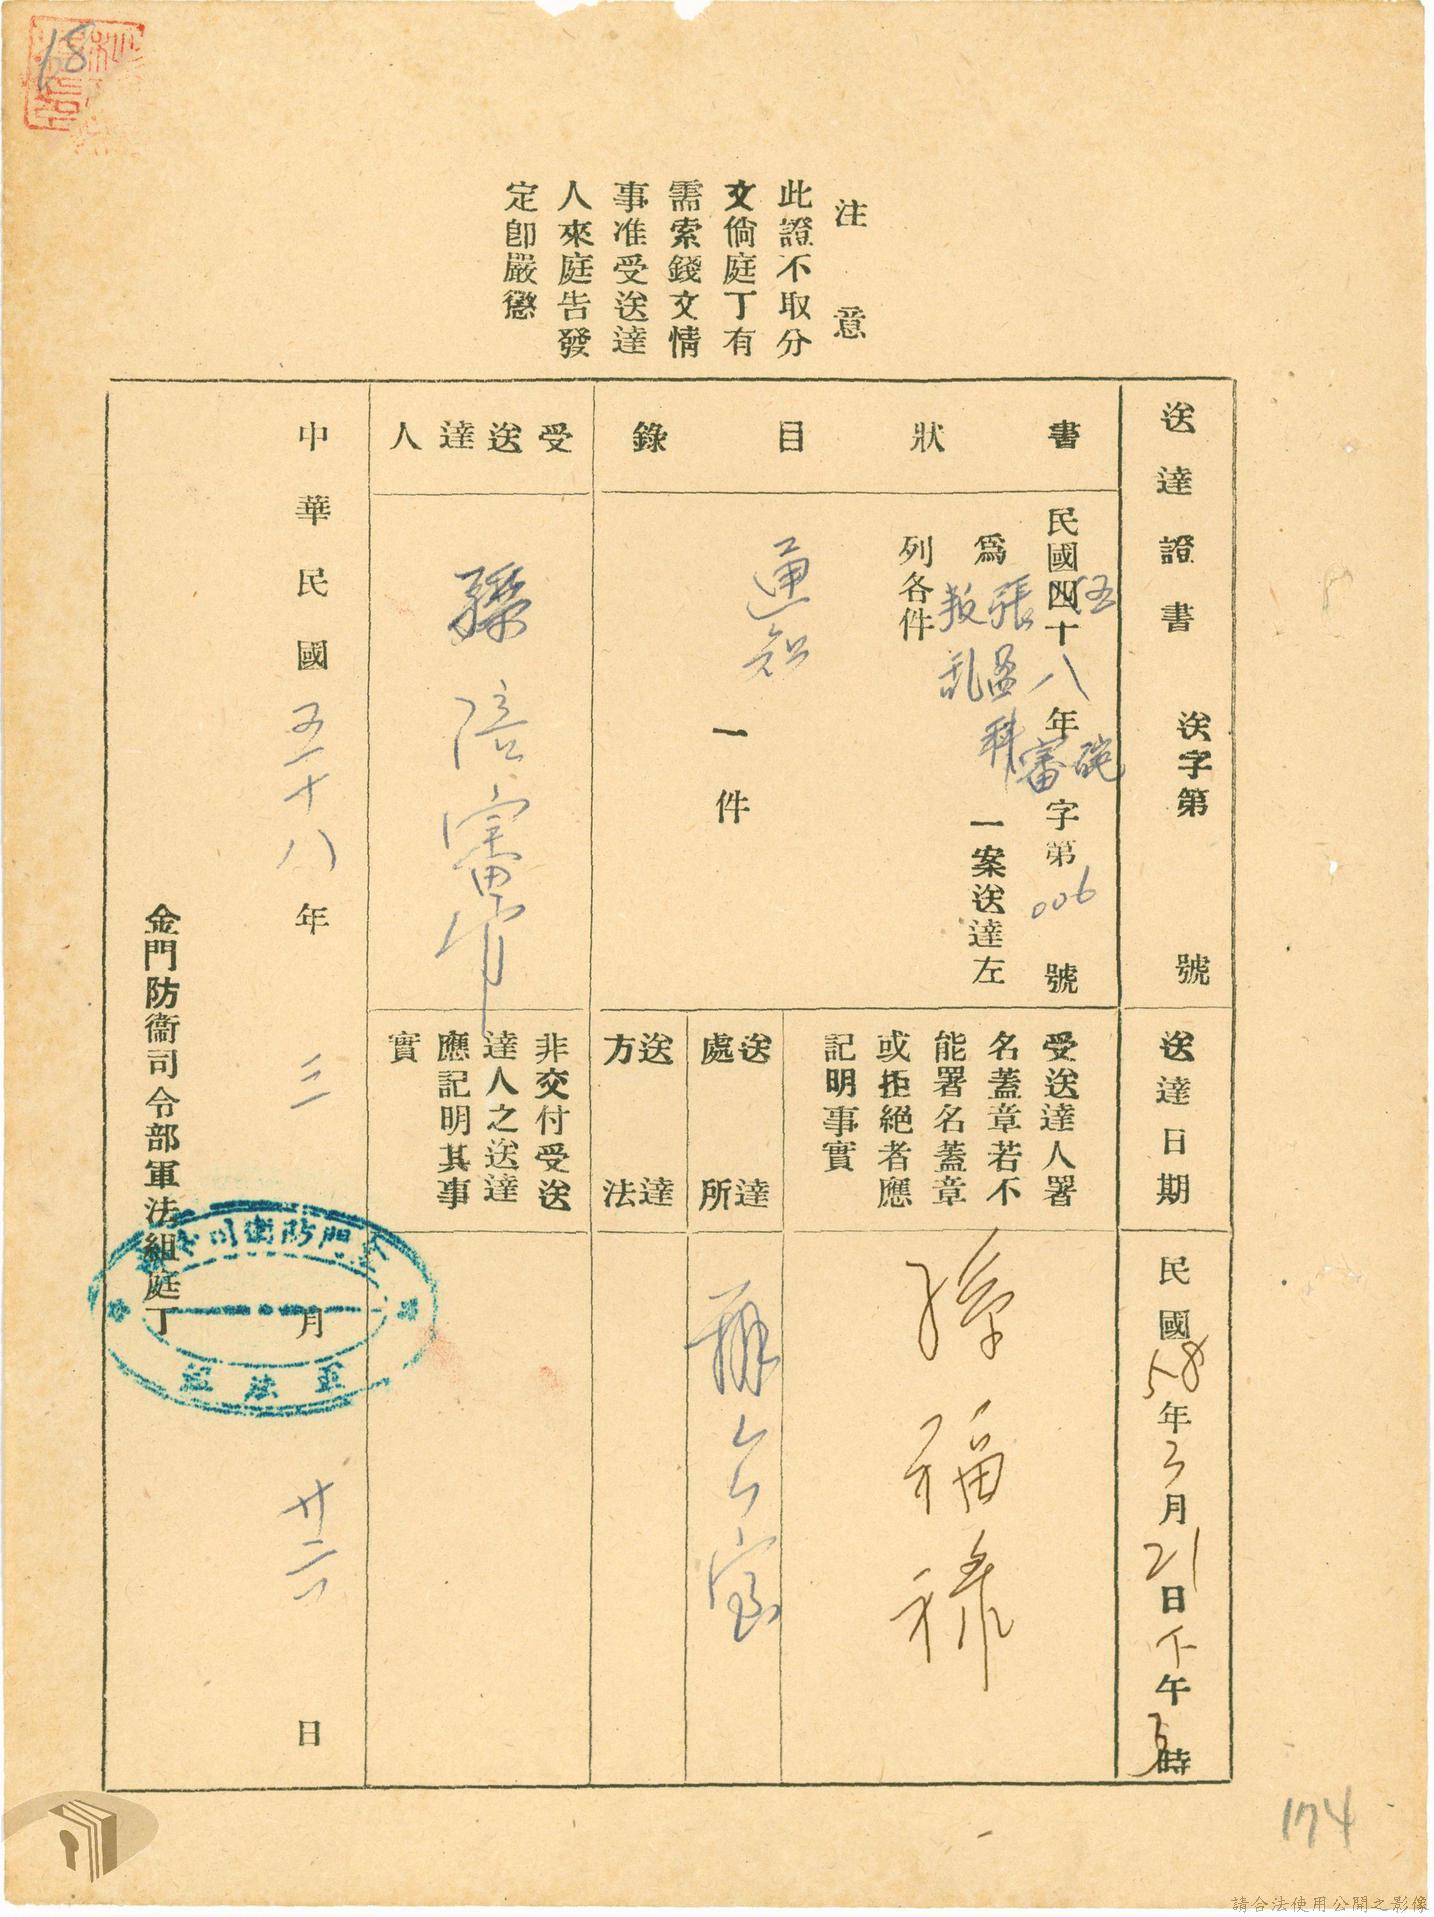 18
注意
此證不取分
文倘庭丁有
需索錢文情
事准受送達
人來庭告發
定卽嚴懲
送達證書
送字第 號
送達日期
民國58年3月21日下午3時
書狀目錄
民國四十伍八年 審字第006號
為張盈科叛乱一案送達左
列各件
通知
一件
受送達人署
名蓋章若不
能署名蓋章
或拒絕者應
記明事實
孫福祿
送達
處所
辦公室
送達
方法
受送達人
孫陪審官
非交付受送
達人之送達
應記明其事
實
中華民國五十八年三月廿六日
金門防衞司令部軍法組庭丁
金門防衛司令部
軍法組
174
請合法使用公開之影像